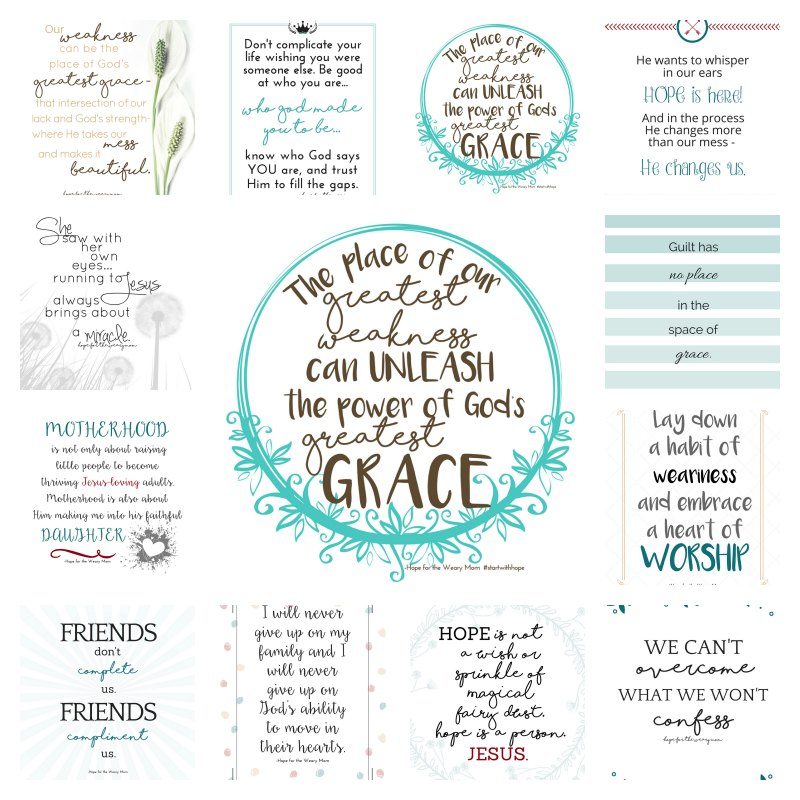 Our
weakness
can be the
place of God's
greatest grace -
that intersection of our
lack and God's strength-
where He takes our
mess
and makes it
beautiful.
hopeforthewearymom
Don't complicate your
life wishing you were
someone else. Be good
at who you are...
who god made
you to be...
know who God says
YOU are, and trust
Him to fill the gaps.
The place of our
greatest
weakness
can UNLEASH
the power of God's
greatest
GRACE
Hope for the Weary Mom #startwithhope
He wants to whisper
in our ears
HOPE is here!
And in the process
He changes more
than our mess -
He changes us.
She
saw with
her
own
eyes...
running to Jesus
always
brings about
a miracle.
hopeforthewearymom
The place of our
greatest
weakness
can UNLEASH
the power of God's
greatest
GRACE
Hope for the Weary Mom #startwithhope
Guilt has
no place
in the
space of
grace.
MOTHERHOOD
is not only about raising
little people to become
thriving Jesus-loving adults.
Motherhood is also about
Him making me into his faithful
DAUGHTER
-Hope for the Weary Mom
Lay down
a habit of
weariness
and embrace
a heart of
WORSHIP
FRIENDS
don't
complete
us.
FRIENDS
compliment
us.
-Hope for the Weary Mom
I will never
give up on my
family and I
will never
give up on
God's ability
to move in
their hearts.
-Hope for the Weary Mom
HOPE is not
a wish or
sprinkle of
magical
fairy dust.
hope is a person.
JESUS.
WE CAN'T
overcome
WHAT WE WON'T
confess
hopefortheweary​mom